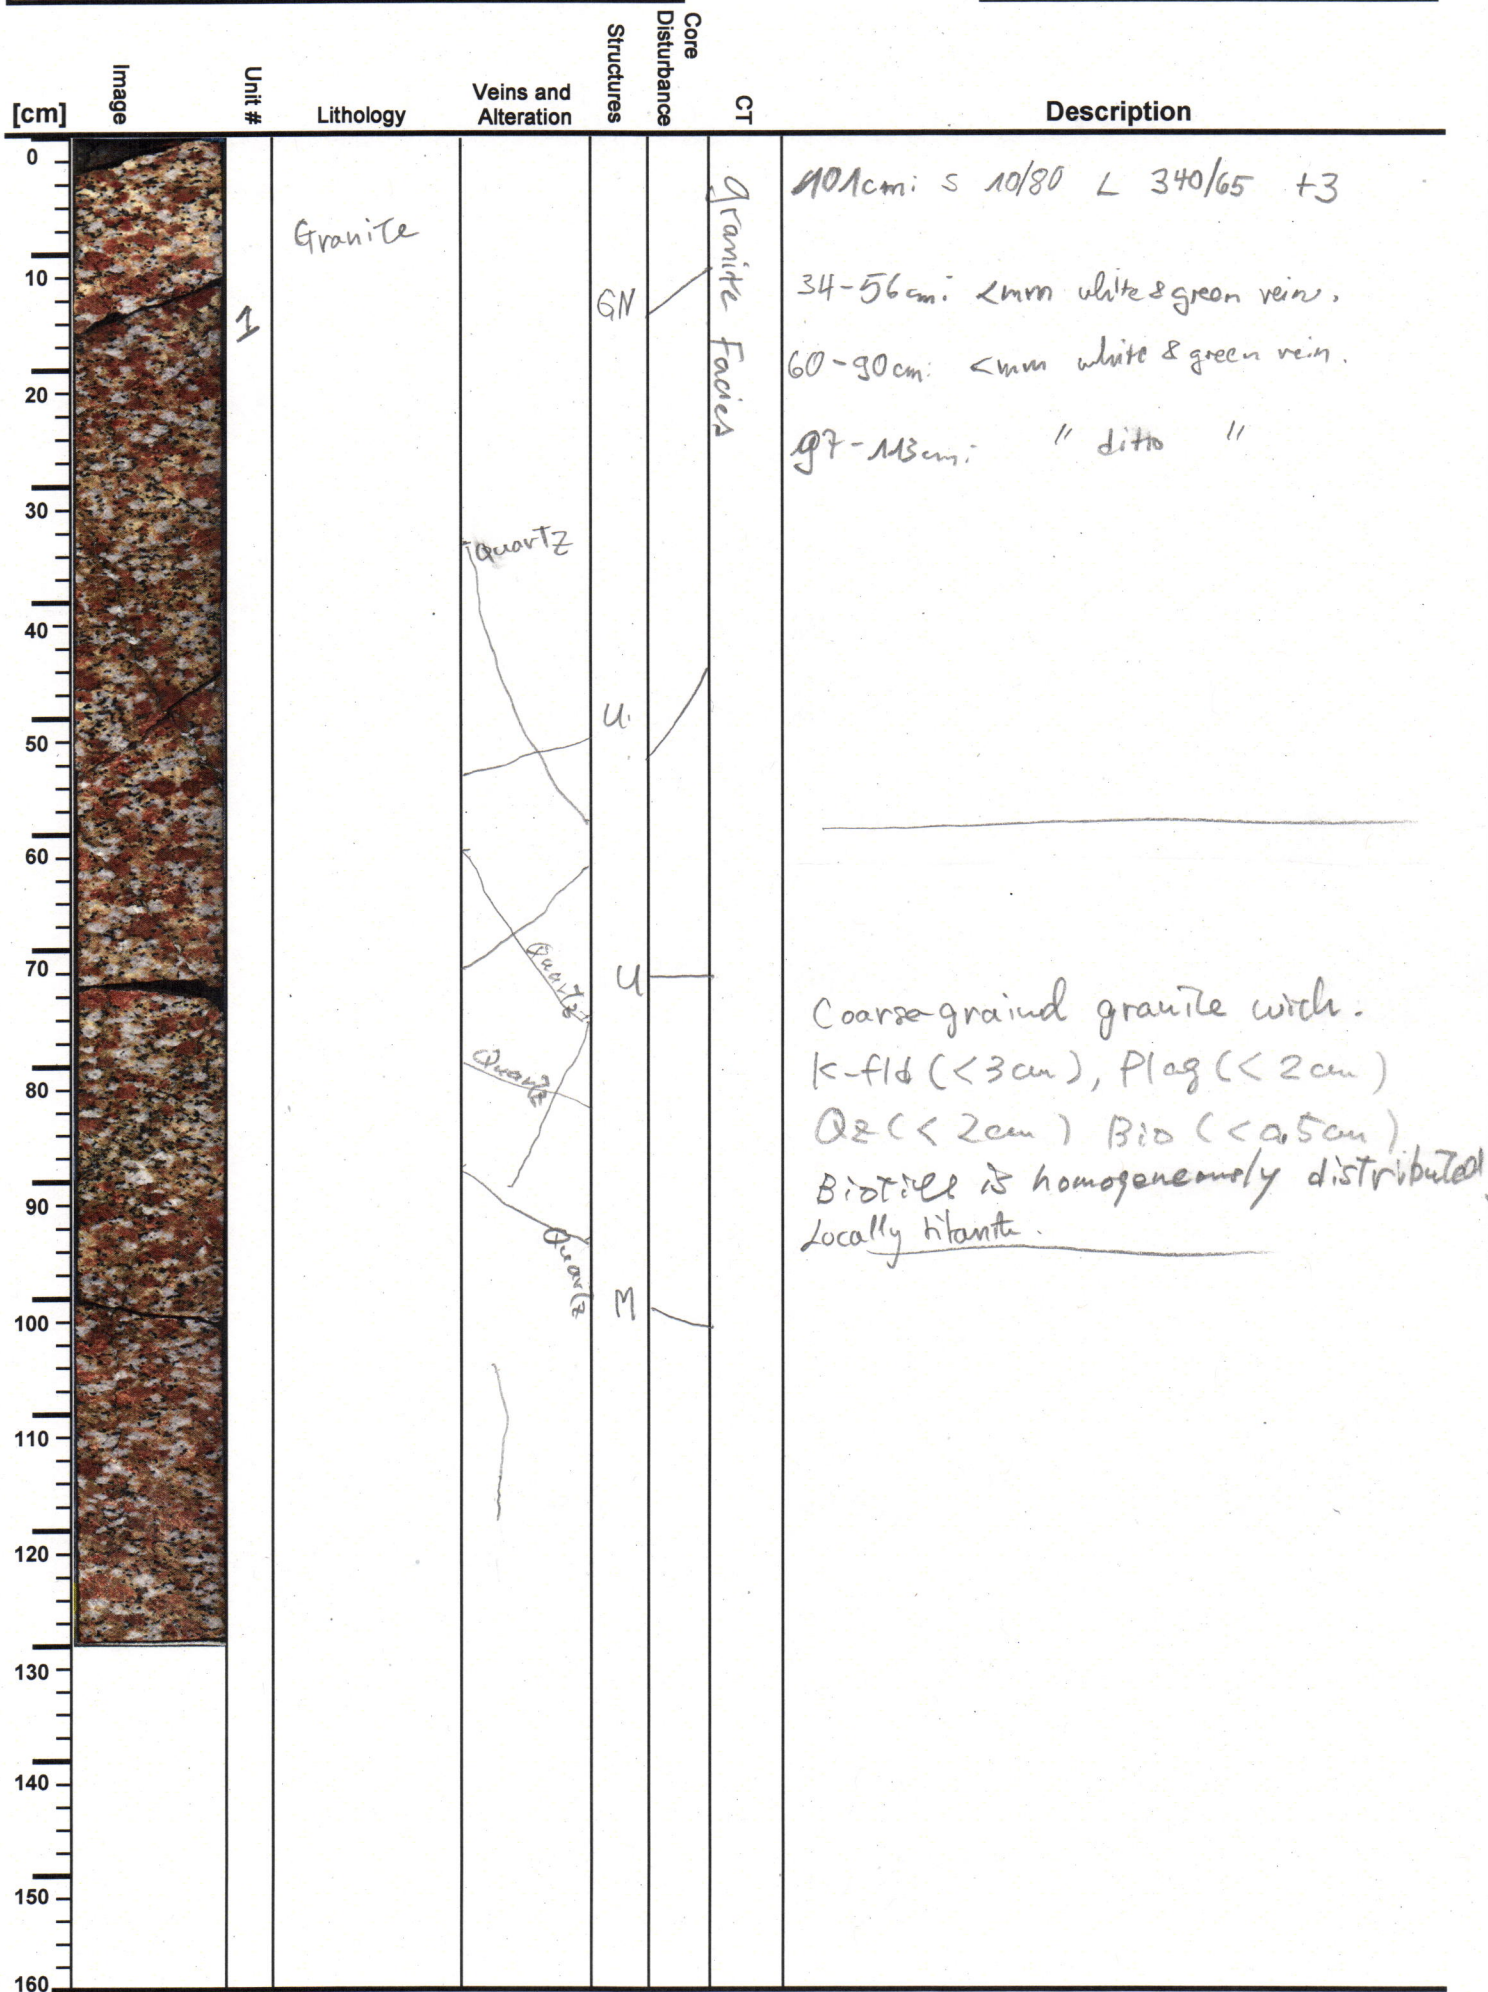 [cm]
Image
Unit #
Lithology
Veins and
Alteration
Structures
Core
Disturbance
CT
Description
0
10
20
30
40
50
60
70
80
90
100
110
120
130
140
150
160
1
Granite
Quartz
Quartz
Quartz
Quartz
GN
U
U
M
granite facies
101cm: S 10/80 L 340/65 +3
34-56cm: <mm white & green vein.
60-90cm: <mm white & green vein.
97-113cm: " ditto "
Coarse-graind granite with.
K-fld (<3cm), Plag (<2cm)
Qz (<2cm) Bio (<0,5cm)
is homogeneously distributed.
Locally titanite.